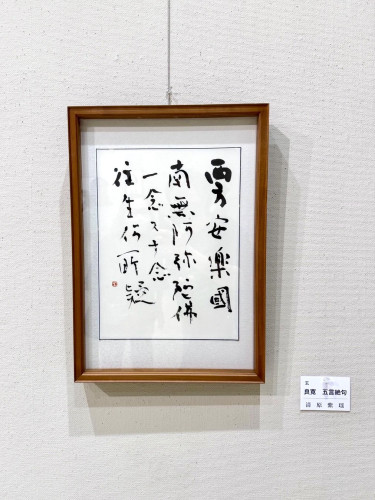 西方安樂國
南無阿弥陀佛
一念又十念
往生何所疑
良寛 五言絶句